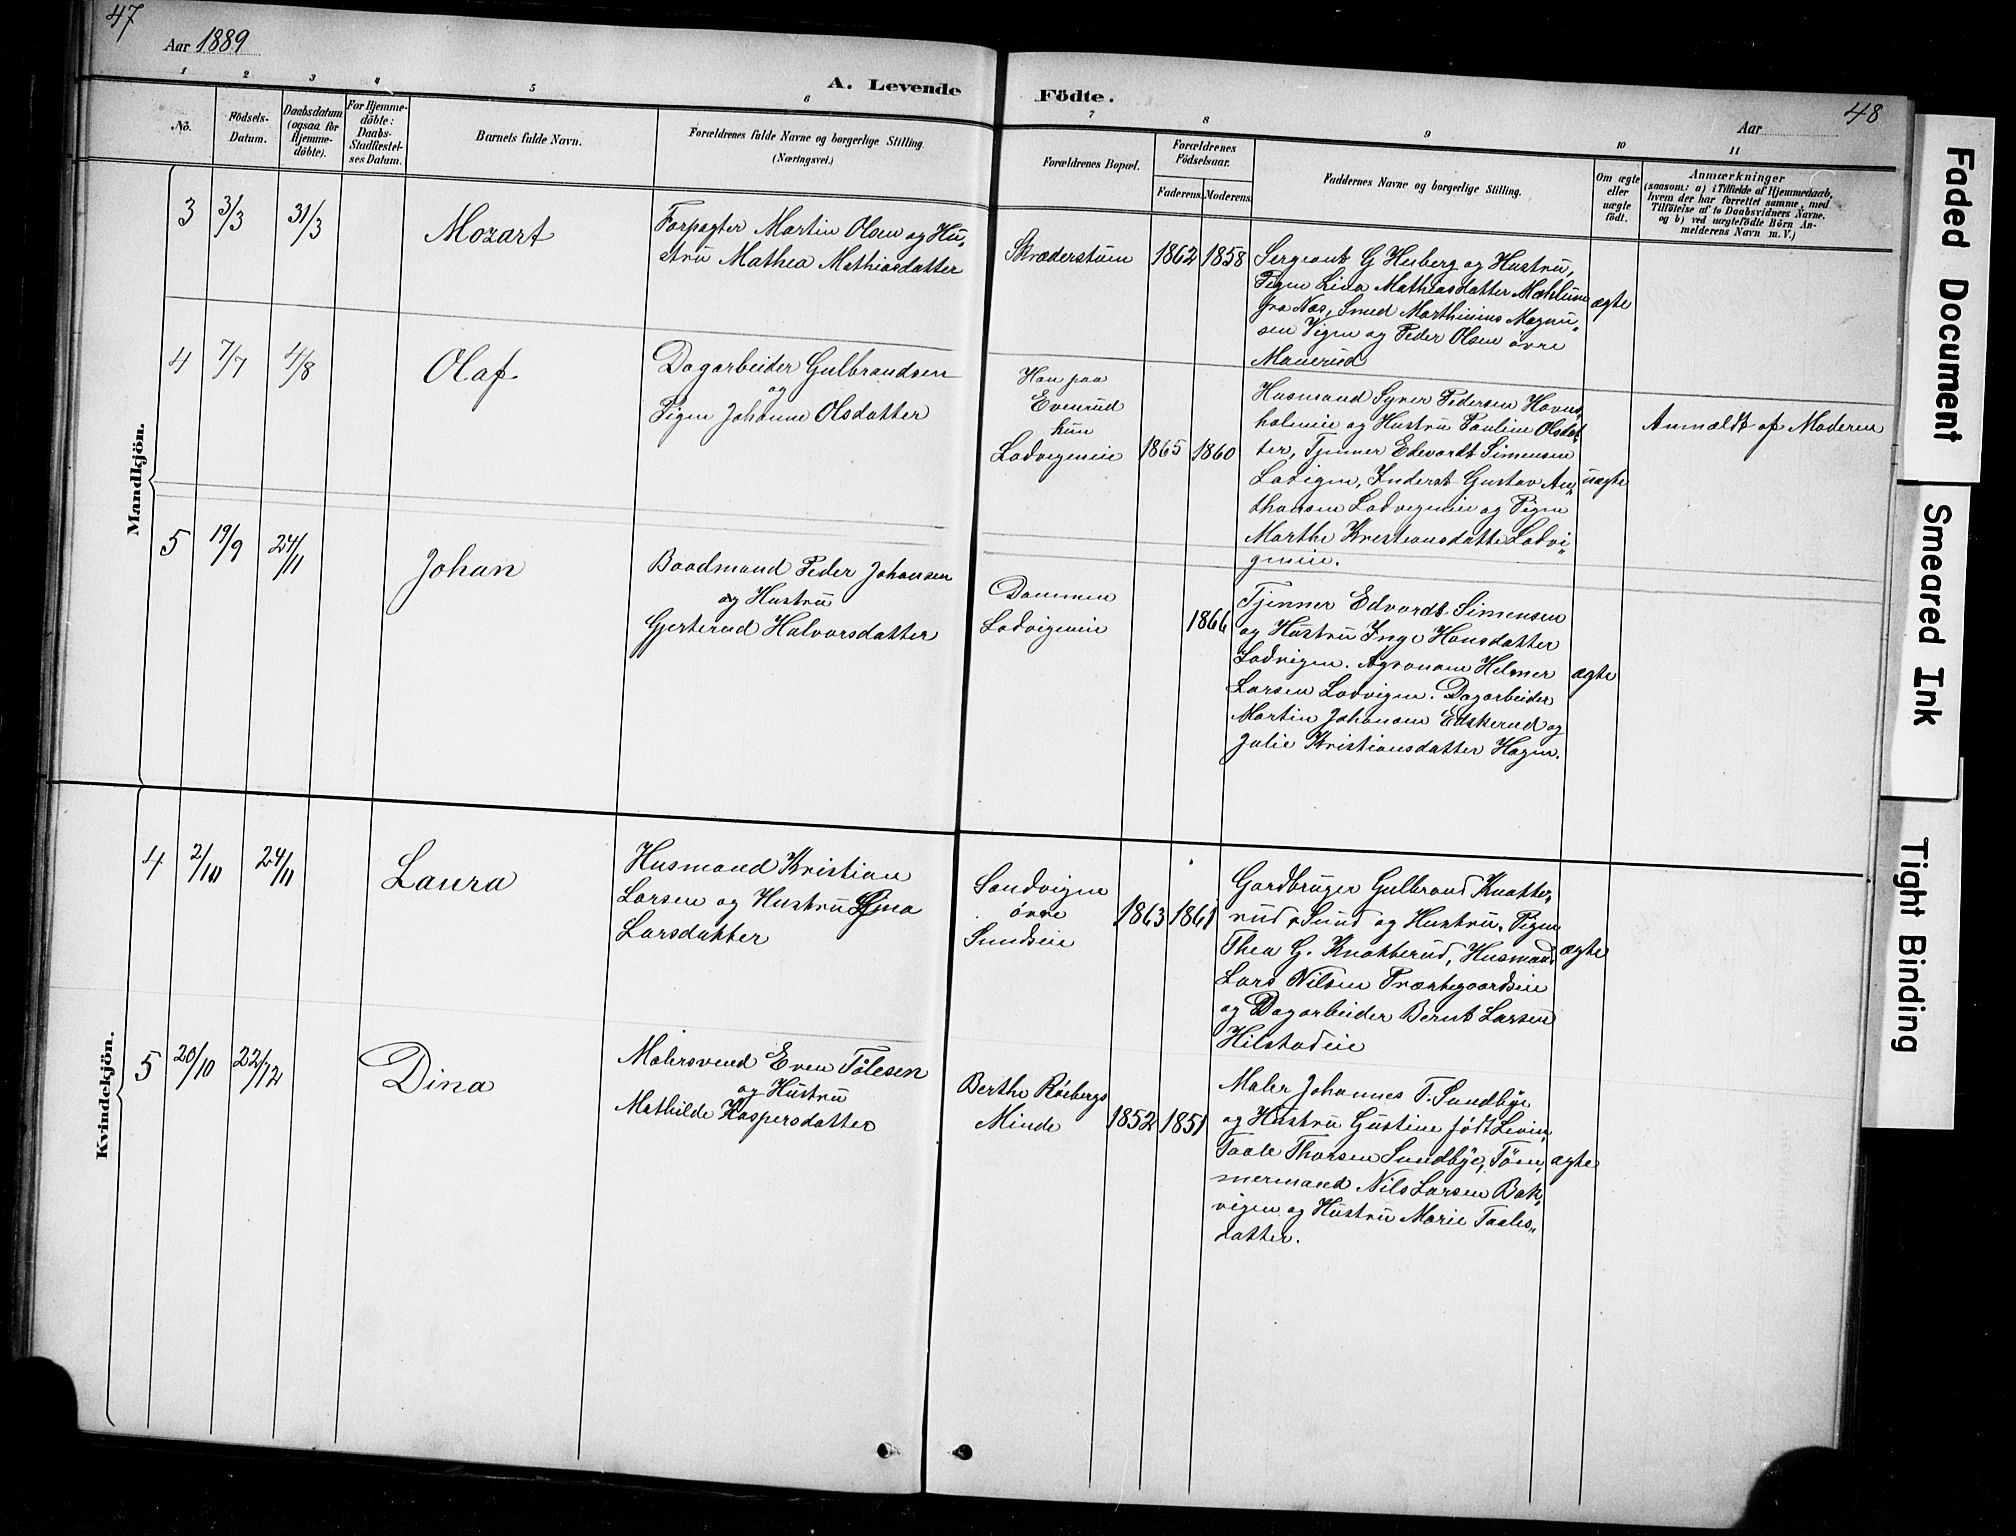 47
Aar 1889
A. Levende
Födte.
Aar
48
1
2
3
4
5
6
7
8
9
10
11
No.
Födsels-
Datum.
Daabsdatum
(ogsaa for
Hjemme-
döbte).
For Hjemme-
döbte:
Daabs-
Stadfæstel-
ses Datum.
Barnets fulde Navn.
Forældrenes fulde Navne og borgerlige Stilling.
(Næringsvei.)
Forældrenes Bopæl.
Forældrenes
Födselsaar.
Faderens.
Moderens.
Faddernes Navne og borgerlige Stilling.
Om ægte
eller
uægte
födt.
Anmærkninger
(saasom: a) i Tilfælde af Hjemmedaab,
hvem der har forrettet samme, med
Tilföielse af to Daabsvidners Navne.
og b) ved uægtefödte Börn An-
melderens Navn m. V.)
Mandkjön.
3
3/3
31/3
Mozart
Forpagter Martin Olsen og Hu-
stru Mathea Mathiasdatter
Skræderstuen
1862
1858
Sergeant G Hesberg og Hustru,
Pigen Lina Mathiasdatter Mæhlum
fra Næs, Smed Marthinius Magnu-
sen Vigen og Peder Olsen övre
Manerud
ægte
4
7/7
4/8
Olaf
Dagarbeider Gulbrandsen
og
Pigen Johanne Olsdatter
Han paa
Evenrud
hun
Ladvigeneie
1865
1860
Husmand Syver Pedersen Havns-
haleneie og Hustru Pauline Olsdat-
ter, Tjenner Edvardt Simensen
Ladvigen, Inderst Gustav An-
thonsen Ladvigeneie og Pigen
Marthe Kristiansdatter Ladvi-
geneie.
uægte
Anmældt af Moderen
5
19/9
24/11
Johan
Baadmand Peder Johansen
og Hustru
Gjertrud Halvorsdatter
Dammen
Ladvigeneie
1866
Tjenner Edvardt Simensen
og Hustru Inge Hansdatter
Ladvigen. Agronom Helmer
Larsen Ladvigen. Dagarbeider
Martin Johansen Eriskerud og
Julie Kristiansdatter Hagen.
ægte
Kvindekjön.
4
2/10
24/11
Laura
Husmand Kristian
Larsen og Hustru Lina
Larsdatter
Sandvigen
övre
Sundseie
1863
1861
Gardbruger Gulbrand Knatte-
rud, Sund og Hustru, Pigen
Thea G. Knatterud, Husmand
Lars Nilsen Præstegaardseie
og Dagarbeider Bernt Larsen
Hilstadeie
ægte
5
20/10
22/12
Dina
Malersvend Even Tolesen
og Hustru
Mathilde Kaspersdatter
Berthe Röebergs
Minde
1852
1851
Maler Johannes T. Sundbye
og Hustru Gustine födt Levin,
Taale Thorsen Sundbye, Töm-
mermand Nils Larsen Bak-
vigen og Hustru Marie Taales-
datter.
ægte
Faded Document
Smeared Ink
Tight Binding